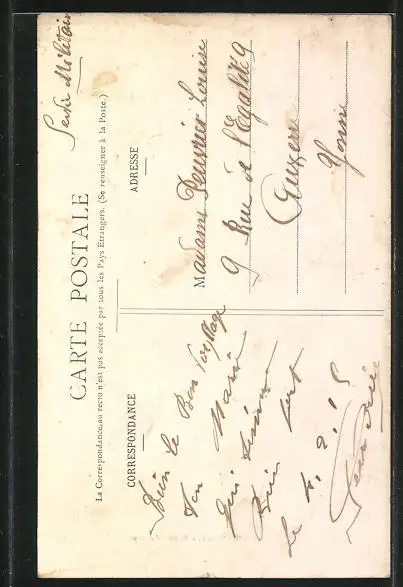 Service Militaire
CARTE POSTALE
La Correspondance au recto n'est pas acceptée par tous les Pays Etrangers. (Se renseigner à la Poste.)
CORRESPONDANCE
ADRESSE
le Bon
Ton Marie
qui
Bien fort
Le 4. 2. 15
Madame Louise
9 Rue de l'Egalité 9
Auxerre
Yonne